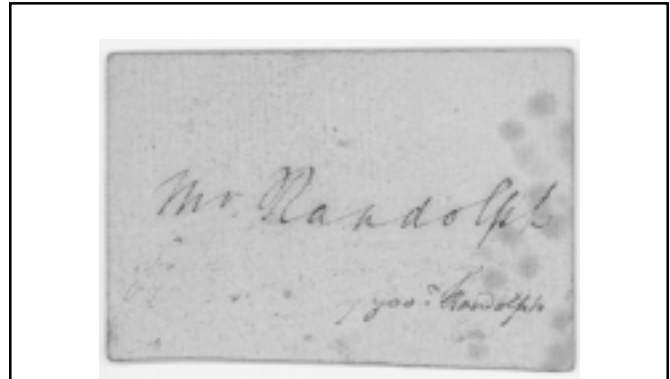 Mr. Randolph
Randolph